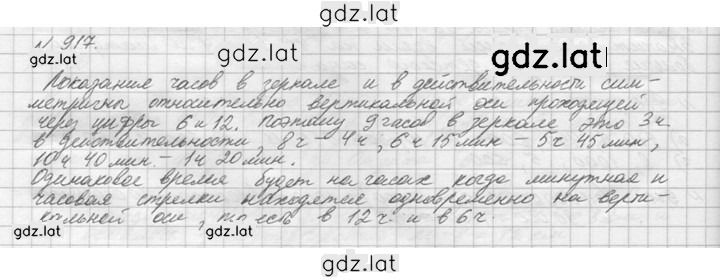 gdz.lat
№ 917.
gdz.lat
gdz.lat
gdz.lat
Показания часов в зеркале и в действительности сим-
метричны относительно вертикальной оси проходящей
через цифры 6 и 12. Поэтому 9 часов в зеркале это 3 ч
в действительности, 8 ч - 4 ч, 6 ч 15 мин - 5 ч 45 мин,
10 ч 40 мин - 1 ч 20 мин.
Одинаковое время будет на часах когда минутная и
часовая стрелки находятся одновременно на верти-
кальной оси, то есть в 12 ч и в 6 ч.
gdz.lat
gdz.lat
gdz.lat